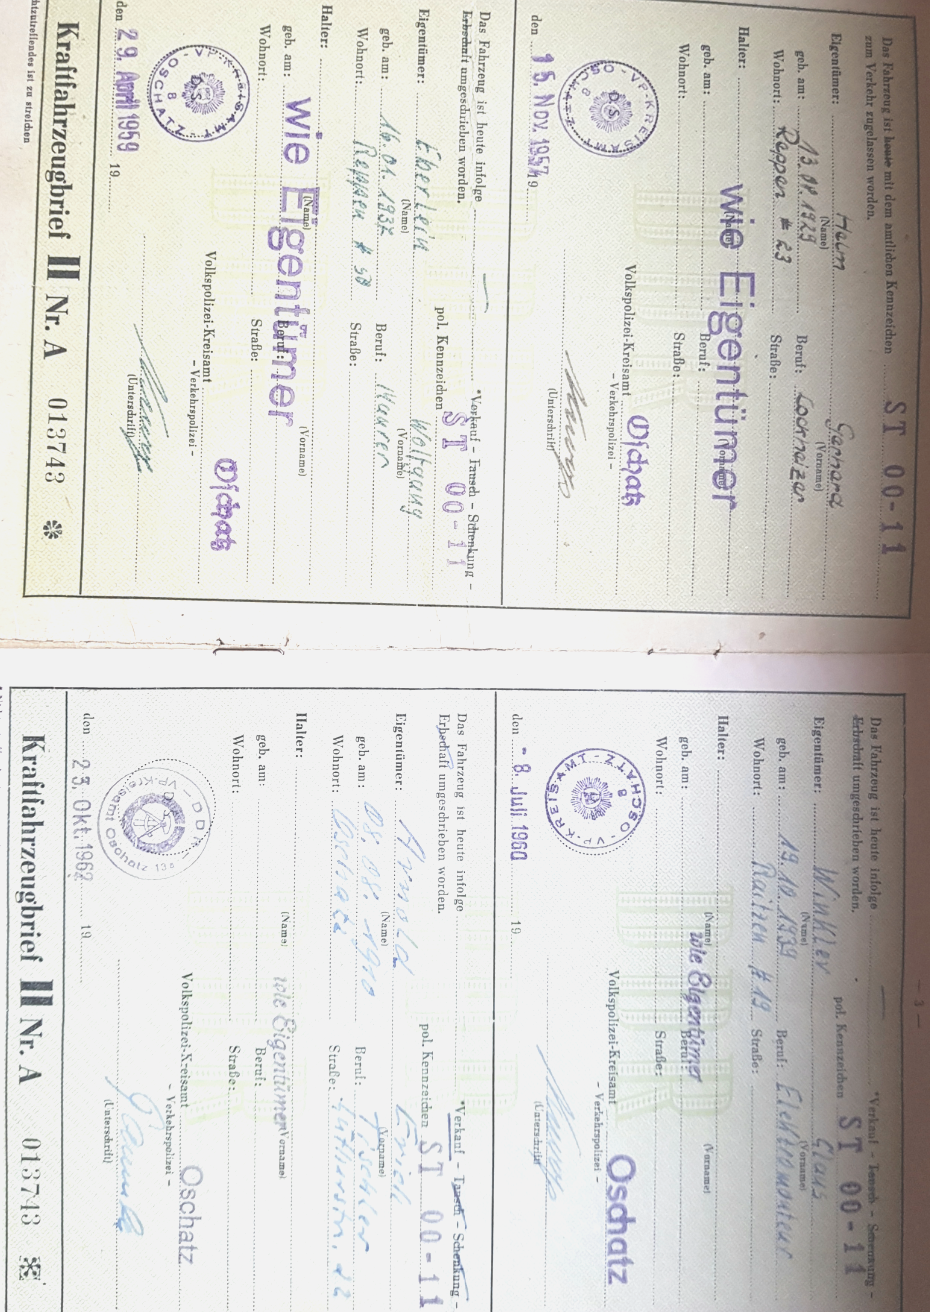 Das Fahrzeug ist heute mit dem amtlichen Kennzeichen ST 00-11
zum Verkehr zugelassen worden.
Eigentümer: Helm Gerhard
(Name) (Vorname)
geb. am: 13.08.1929 Beruf: Lockheizer
Wohnort: Reppen # 23 Straße:
Halter: wie Eigentümer
(Name) (Vorname)
geb. am: Beruf:
Wohnort: Straße:
Volkspolizei-Kreisamt Oschatz
- Verkehrspolizei -
VP-KREISAMT OSCHATZ 8
den 15. Nov. 1957 19
(Unterschrift)
Das Fahrzeug ist heute infolge *Verkauf - Tausch - Schenkung -
Erbschaft umgeschrieben worden. pol. Kennzeichen ST 00-11
Eigentümer: Eberlein Wolfgang
(Name) (Vorname)
geb. am: 16.01.1937 Beruf: Maurer
Wohnort: Reppen # 50 Straße:
Halter: wie Eigentümer
(Name) (Vorname)
geb. am: Beruf:
Wohnort: Straße:
Volkspolizei-Kreisamt Oschatz
- Verkehrspolizei -
VP-KREISAMT OSCHATZ 8
den 29. April 1959 19
(Unterschrift)
Kraftfahrzeugbrief II Nr. A 013743
ist zu streichen
— 3 —
Das Fahrzeug ist heute infolge *Verkauf - Tausch - Schenkung -
Erbschaft umgeschrieben worden. pol. Kennzeichen ST 00-11
Eigentümer: Winkler Claus
(Name) (Vorname)
geb. am: 19.10.1939 Beruf: Elektromonteur
Wohnort: Raitzen # 19 Straße:
Halter: wie Eigentümer
(Name) (Vorname)
geb. am: Beruf:
Wohnort: Straße:
Volkspolizei-Kreisamt Oschatz
- Verkehrspolizei -
VP-KREISAMT OSCHATZ 8
den - 8. Juli 1960 19
(Unterschrift)
Das Fahrzeug ist heute infolge *Verkauf - Tausch - Schenkung -
Erbschaft umgeschrieben worden. pol. Kennzeichen ST 00-11
Eigentümer: Arnold Erich
(Name) (Vorname)
geb. am: 08.08.1910 Beruf: Tischler
Wohnort: Oschatz Straße: Lutherstr. 22
Halter: wie Eigentümer
(Name) (Vorname)
geb. am: Beruf:
Wohnort: Straße:
Volkspolizei-Kreisamt Oschatz
- Verkehrspolizei -
VP-Kreisamt Oschatz
den 23. Okt. 1962 19
(Unterschrift)
Kraftfahrzeugbrief II Nr. A 013743